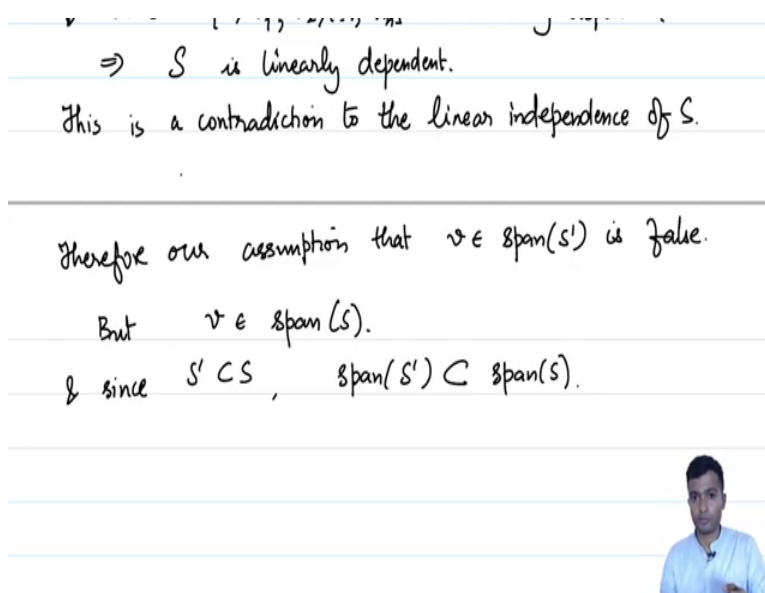 ⇒ S is linearly dependent.
This is a contradiction to the linear independence of S.
Therefore our assumption that v ∈ span(S') is false.
But v ∈ span(S).
& since S' ⊂ S, span(S') ⊂ span(S).